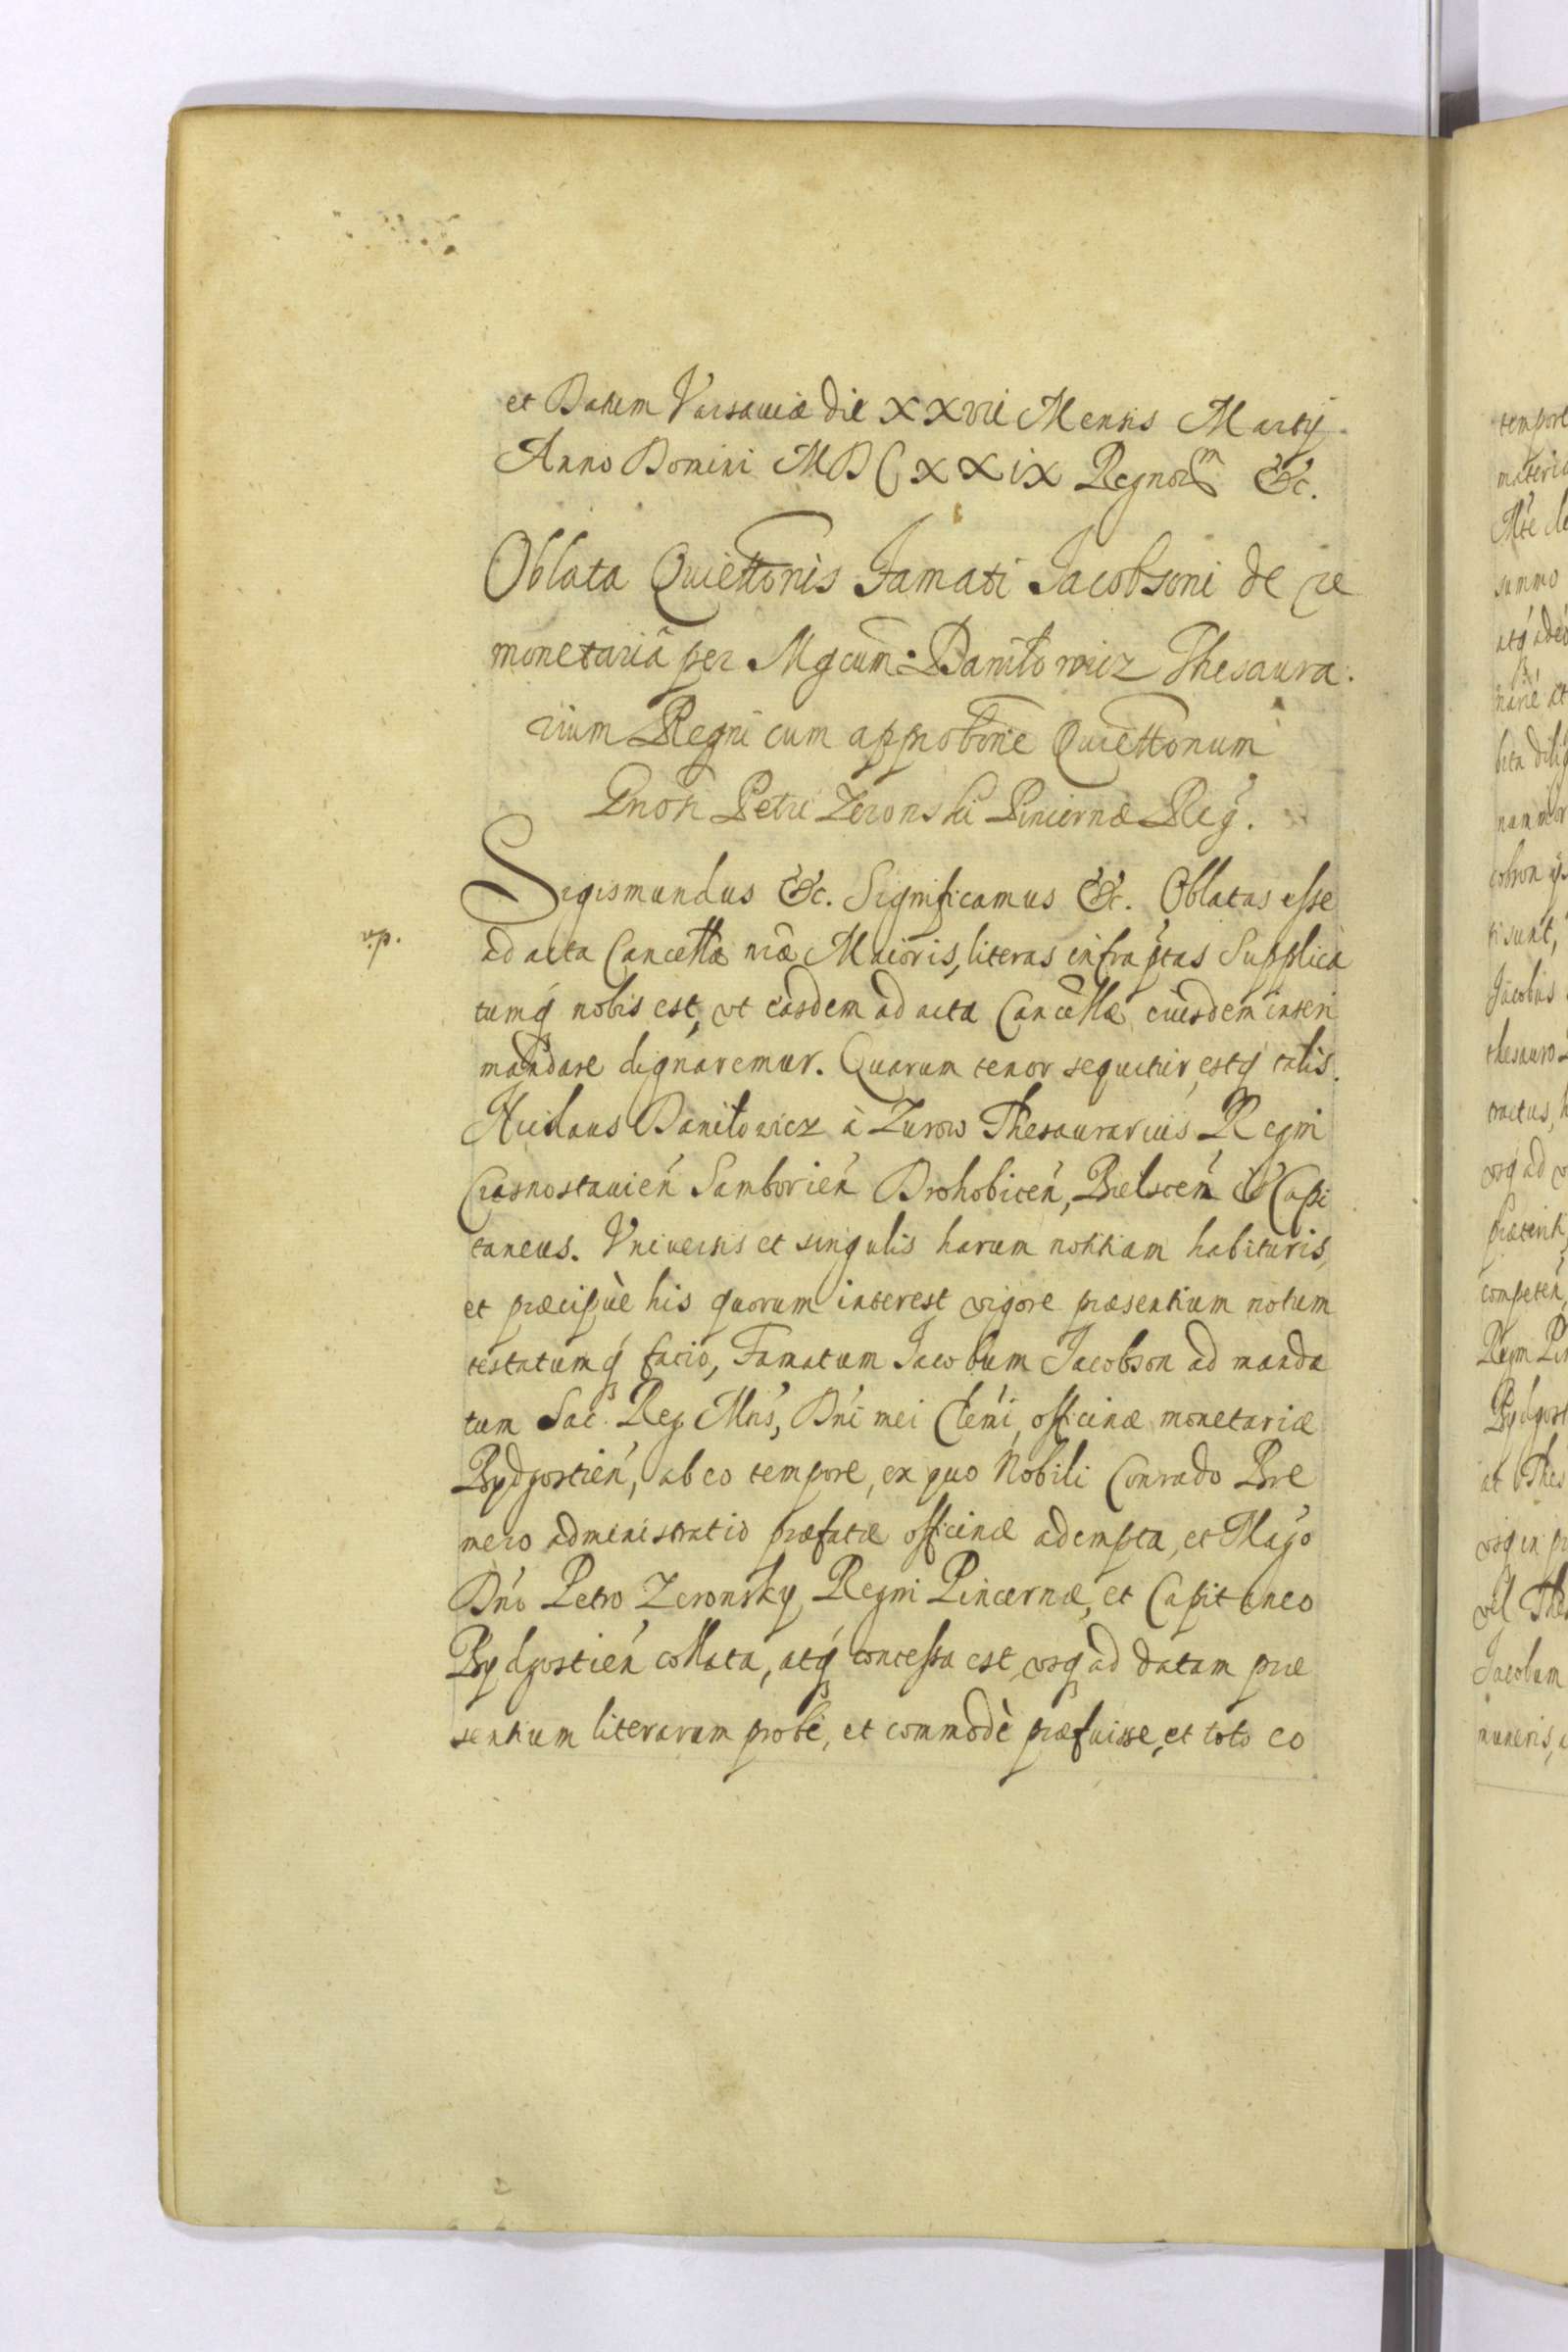 et Datum Varsauiæ die XXVII Mensis Martij
Anno Domini MDCXXIX Regnorm &c.
Oblata Quiettõnis Famati Jacobsoni de re
monetaria per Mgcum Daniłowicz Thesaura
rium Regni cum approbõne Quiettonum
Petri Zeronski Pincernæ Reg.
Sigismundus &c. Significamus &c. Oblatas esse
ad acta Cancellæ nræ Maioris, literas infraptas Supplica
tumq nobis est, vt easdem ad acta Cancellæ eiusdem inseri
mandare dignaremur. Quarum tenor sequitur, estq talis.
Daniłowicz à Zurow Thesaurarius Regni
Crasnostauien Samborien Drohobicen, Bielscen &c Capi
taneus. Vniuersis et singulis harum notitiam habituris,
et præcipuè his quorum interest, vigore præsentium notum
testatumq facio, Famatum Jacobum Jacobson ad manda
tum Sac. Reg. Mtis, Dni mei Clemi, officinæ monetariæ
Bydgostien, ab eo tempore, ex quo Nobili Conrado Bre
mero administratio præfatæ officinæ adempta, et Magco
Dno Petro Zeronsky Regni Pincernæ, et Capitaneo
Bydgostien collata, atq concessa est, vsq ad datam præ
sentium literarum probè, et commodè præfuisse, et toto eo